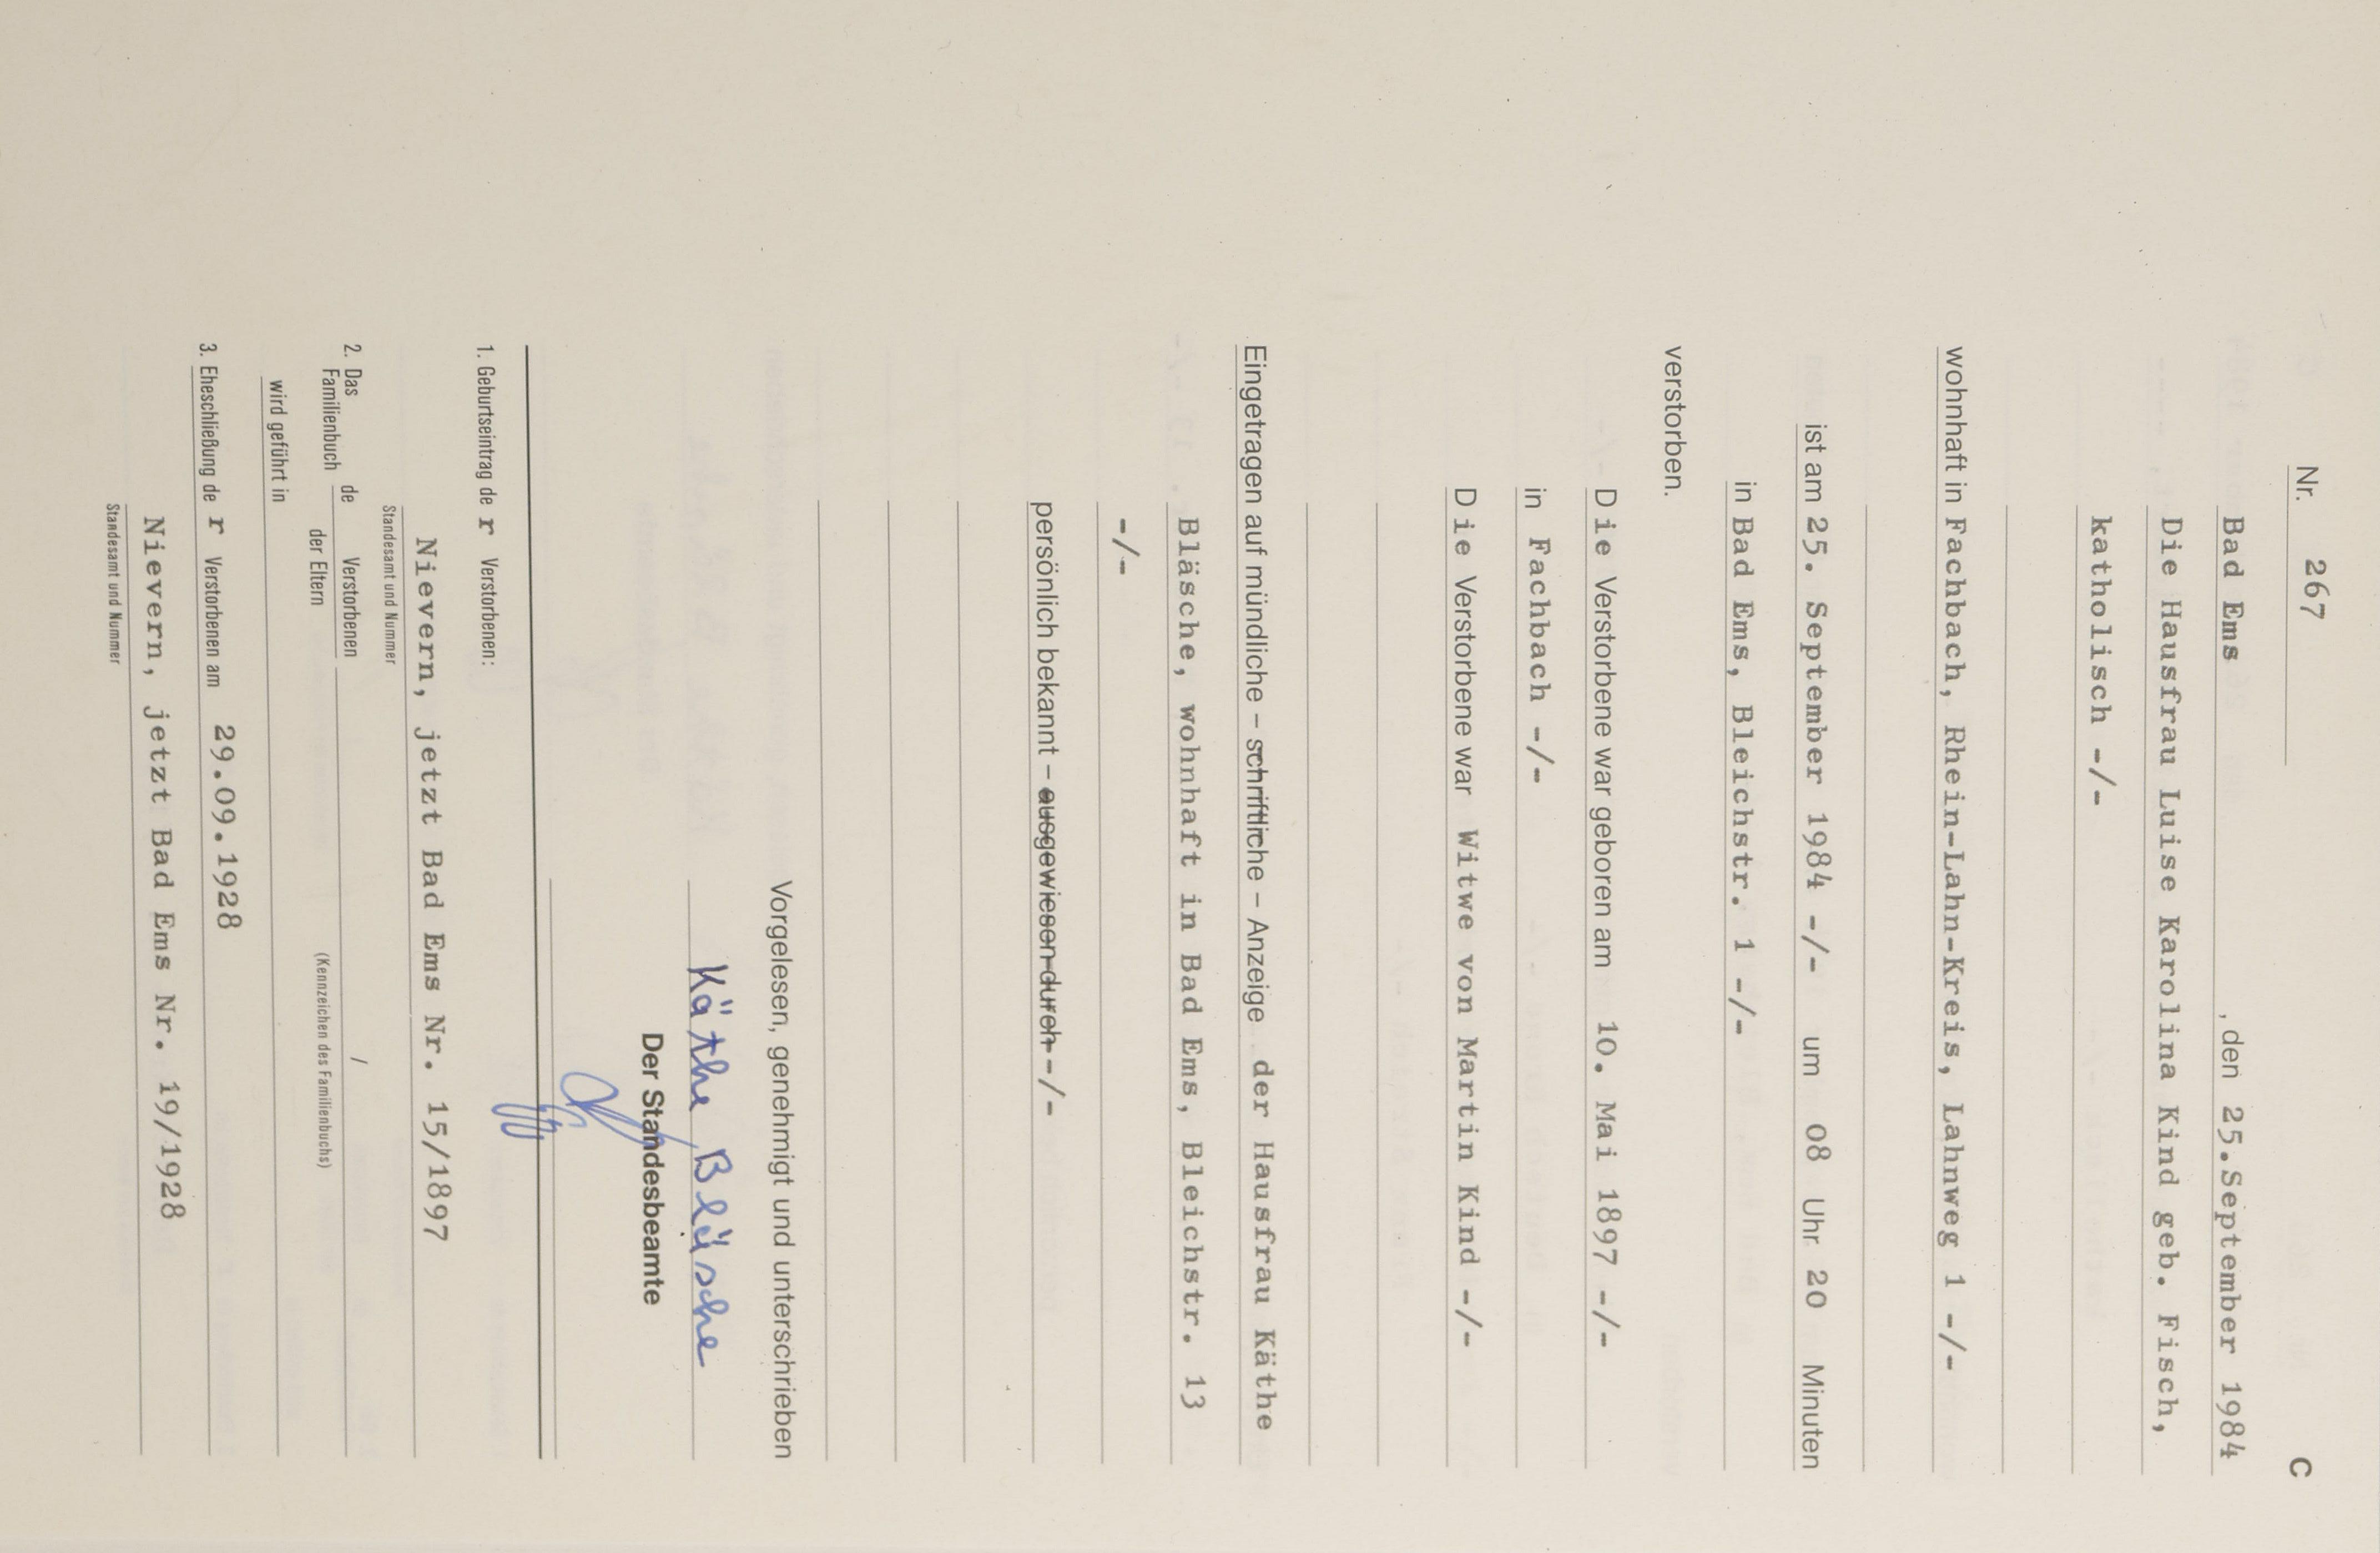 C
Nr. 267
Bad Ems, den 25.September 1984
Die Hausfrau Luise Karolina Kind geb. Fisch,
katholisch -/-
wohnhaft in Fachbach, Rhein-Lahn-Kreis, Lahnweg 1 -/-
ist am 25. September 1984 -/- um 08 Uhr 20 Minuten
in Bad Ems, Bleichstr. 1 -/-
verstorben.
Die Verstorbene war geboren am 10. Mai 1897 -/-
in Fachbach -/-
Die Verstorbene war Witwe von Martin Kind -/-
Eingetragen auf mündliche – schriftliche – Anzeige der Hausfrau Käthe
Bläsche, wohnhaft in Bad Ems, Bleichstr. 13
-/-
persönlich bekannt – ausgewiesen durch -/-
Vorgelesen, genehmigt und unterschrieben
Käthe Bläsche
Der Standesbeamte
1. Geburtseintrag der Verstorbenen:
Nievern, jetzt Bad Ems Nr. 15/1897
Standesamt und Nummer
2. Das Familienbuch de Verstorbenen /
der Eltern (Kennzeichen des Familienbuchs)
wird geführt in
3. Eheschließung der Verstorbenen am 29.09.1928
Nievern, jetzt Bad Ems Nr. 19/1928
Standesamt und Nummer